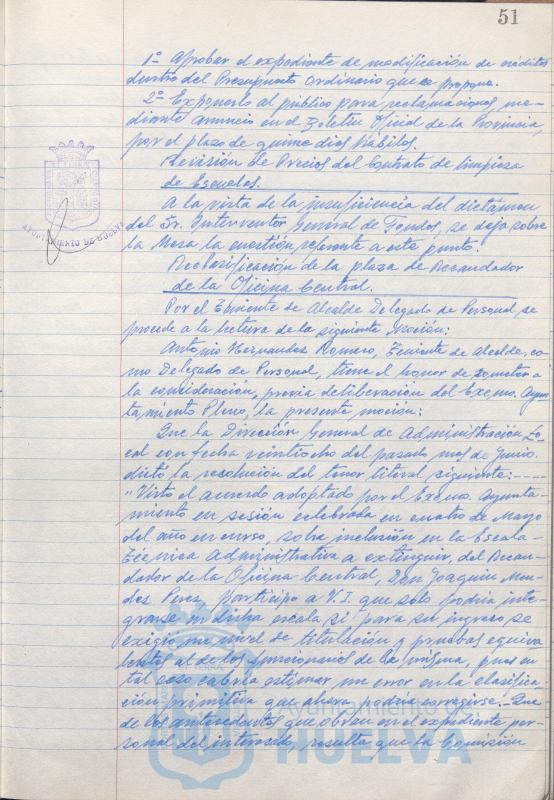 51
1º Aprobar el expediente de modificación de créditos
dentro del Presupuesto Ordinario que se propone.
2º Exponerlo al público para reclamaciones, me-
diante anuncio en el Boletín Oficial de la Provincia,
por el plazo de quince días hábiles.
Revisión de Precios del Contrato de limpieza
de Escuelas.
A la vista de la insuficiencia del dictámen
del Sr. Interventor General de Fondos, se deja sobre
la Mesa la cuestión referente a este punto.
Reclasificación de la plaza de Recaudador
de la Oficina Central.
Por el Teniente de Alcalde Delegado de Personal, se
procede a la lectura de la siguiente Moción:
Antonio Hernandez Romero, Teniente de Alcalde, co-
mo Delegado de Personal, tiene el honor de someter a
la consideración, previa deliberación del Excmo. Ayun-
tamiento Pleno, la presente moción:
Que la Dirección General de Administración Lo-
cal con fecha veintiocho del pasado mes de Junio
dictó la resolución del tenor literal siguiente: -----
"Visto el acuerdo adoptado por el Excmo. Ayunta-
miento en sesión celebrada en cuatro de Mayo
del año en curso, sobre inclusión en la Escala
Técnica Administrativa a extinguir, del Recau-
dador de la Oficina Central, Don Joaquin Men-
dez Perez, participo a V.I. que sólo podría inte-
grarse en dicha escala si para su ingreso se
exigió un nivel de titulación y pruebas equiva-
lentes al de los funcionarios de la misma, pues en
tal caso cabría estimar un error en la clasifica-
ción primitiva que ahora podría corregirse". Que
de los antecedentes que obran en el expediente per-
sonal del interesado, resulta que la Comisión
AYUNTAMIENTO DE HUELVA
Ayuntamiento de
HUELVA